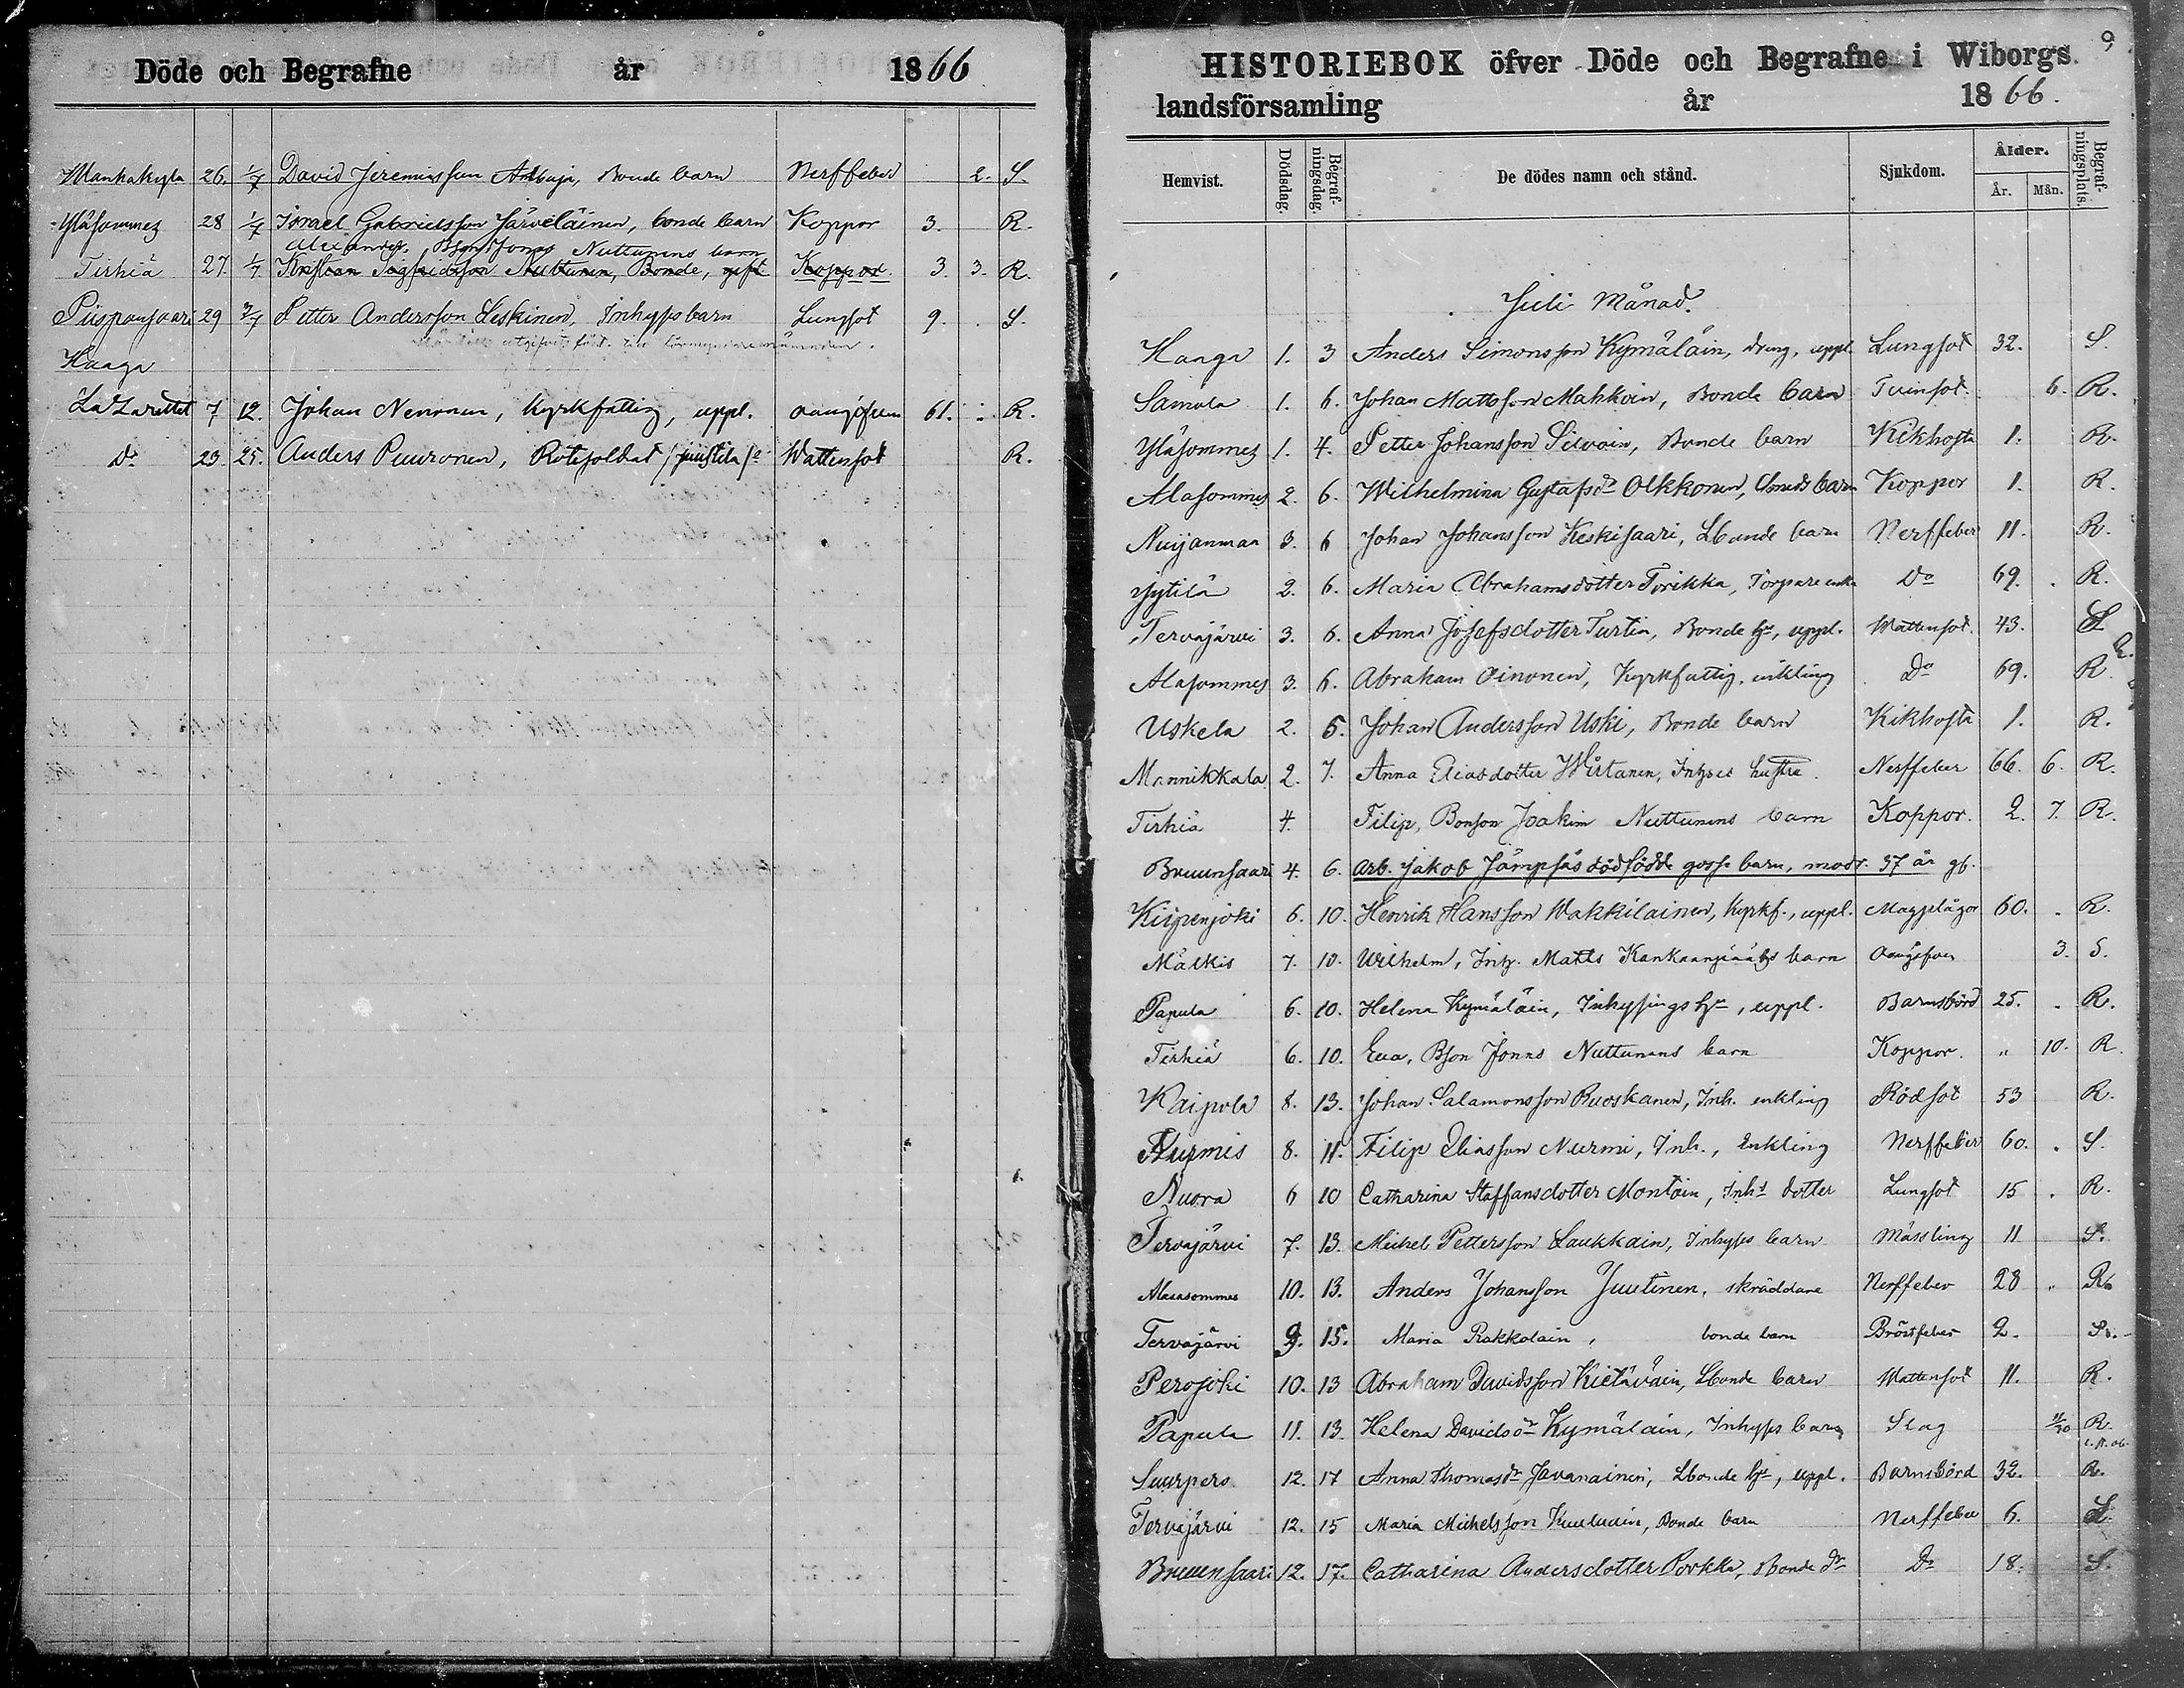 Döde och Begrafne år 1866
Mankakyla 26. 1/7 David Jeremiasson bonde barn Nerffeber 2. S.
Yläsommez 28 1/7 Israel Gabrielsson Järveläinen, bonde barn Koppor 3. R.
Alexander, Bson Jonas Nuttunens barn
Tirhiä 27. 1/7 Kristian Sigfridsson Nuttunen, Bonde, gift Koppor 3. 3. R.
Piispansaari 29 3/7 Petter Andersson Leskinen, Inhyses barn Lungsot 9. S.
Haaga
Lazarettet 7 12. Johan Nenonen, kyrkfattig, uppl. 61. R.
Do 23. 25. Anders Puuronen, Rotesoldat / Juustila / Wattensot R.
HISTORIEBOK öfver Döde och Begrafne i Wiborgs 9
landsförsamling år 1866.
Hemvist. Dödsdag. Begrafningsdag. De dödes namn och stånd. Sjukdom. Ålder. År. Mån. Begrafningsplats.
Juli Månad.
Haaga 1. 3 Anders Simonsson Kymäläin, dreng, uppl. Lungsot 32. S.
Samola 1. 6. Johan Mattsson Mahkoin, Bonde barn Tvinsot. 6. R.
Yläsommez 1. 4. Petter Johansson Silvoin, Bonde barn Kikhosta 1. R.
Alasommes 2. 6. Wilhelmina Gustafsdr Olkkonen, Smeds barn Koppor 1. R.
Nuijanmaa 3. 6 Johan Johansson Keskisaari, Lbonde barn Nerffeber 11. R.
2. 6. Maria Abrahamsdotter Torikka, Torpare enka Do 69. R.
Tervajärvi 3. 6. Anna Josefsdotter Turtia, Bonde hu, uppl. Wattensot. 43. S
Alasommes 3. 6. Abraham Oinonen, Kyrkfattig, enkling Do 69. R
Uskela 2. 5. Johan Andersson Uski, Bonde barn Kikhosta 1. R.
Mannikkala 2. 7. Anna Eliasdotter Wirtanen, Inhyses hustru. Nerffeber 66. 6. R.
Tirhiä 4. Filip, Bonson Joakim Nuttunens barn Koppor. 2. 7. R.
Bruunsaari 4. 6. Arb. Jakob Jämpsäs dödfödde gosse barn, modr. 37 år gl.
Kiipenjoki 6. 10. Henrik Hansson Wakkilainen, Kyrkf., uppl. Magplågor 60. R.
Mälkis 7. 10. Wilhelm, Inh. Matts Kankaanpääs barn 3. S.
Papula 6. 10. Helena Kymäläin, Inhysings hu, uppl. Barnsbörd 25. R.
Tirhiä 6. 10. Eva, Bson Jonas Nuttunens barn Koppor. " 10. R.
Kaipola 8. 13. Johan Salamonsson Ruoskanen, Inh. enkling Rödsot 53 R.
Nurmis 8. 11. Filip Eliasson Nurmi, Inh., Enkling Nerffeber 60. S.
Nuora 6 10 Catharina Staffansdotter Montoin, Inhs dotter Lungsot 15 R.
Tervajärvi 7. 13. Michel Pettersson Laukkain, Inhyses barn Mässling 11 S.
Alasommes 10. 13. Anders Johansson Juutinen, skräddare Nerffeber 28 R.
Tervajärvi 9. 15. Maria Rakkolain, bonde barn Bröstfeber 2. S.
Perojoki 10. 13 Abraham Davidsson Kietäväin, Lbonde barn Wattensot 11. R.
Papula 11. 13. Helena Davidsdr Kymäläin, Inhyses barn Slag 11/30 R.
Suurpero 12. 17 Anna Thomasdr Javanainen, Lbonde hu, uppl. Barnsbörd 32. R.
Tervajärvi 12. 15 Maria Michelsson Kuuluvain, Bonde barn Nerffeber 6. S.
Bruuensaari 12. 17. Catharina Andersdotter Porkka, Bonde dr Do 18. S.